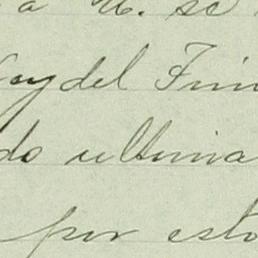 a U. se
oy del Fin
do ultima
por esto